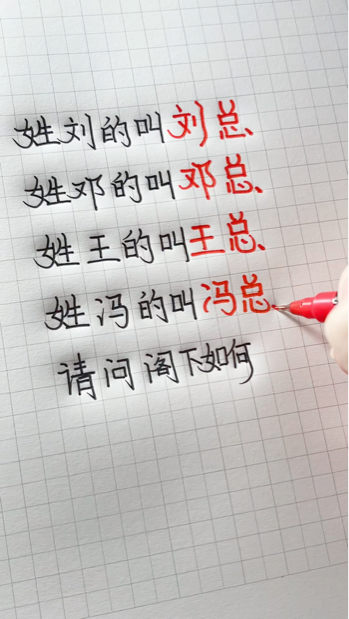 姓刘的叫刘总、
姓邓的叫邓总、
姓王的叫王总、
姓冯的叫冯总
请问阁下如何